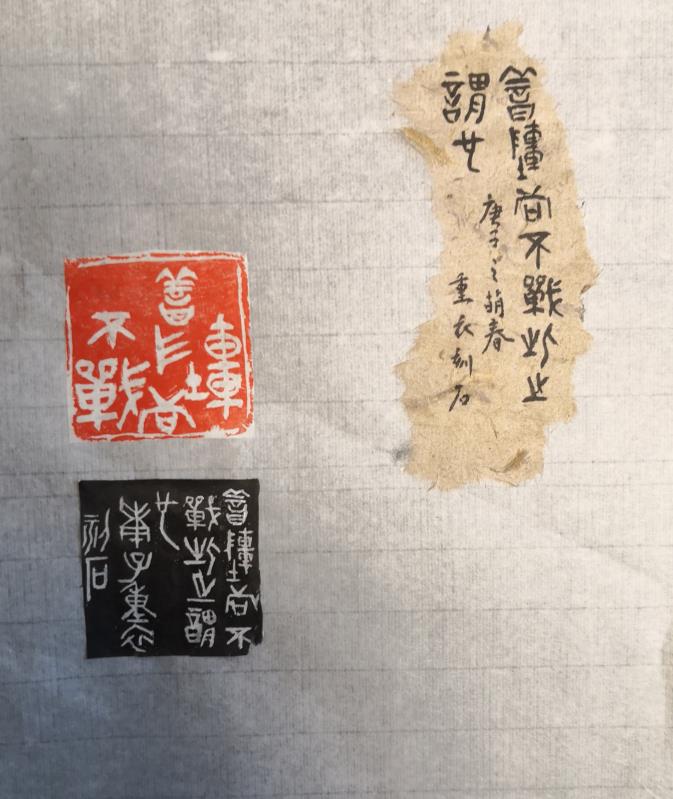 善陣者不戰此之
謂也
庚子之萌春
重衣刻石
善陣者
不戰
善陣者不
戰此之謂
也
庚子重衣
刻石